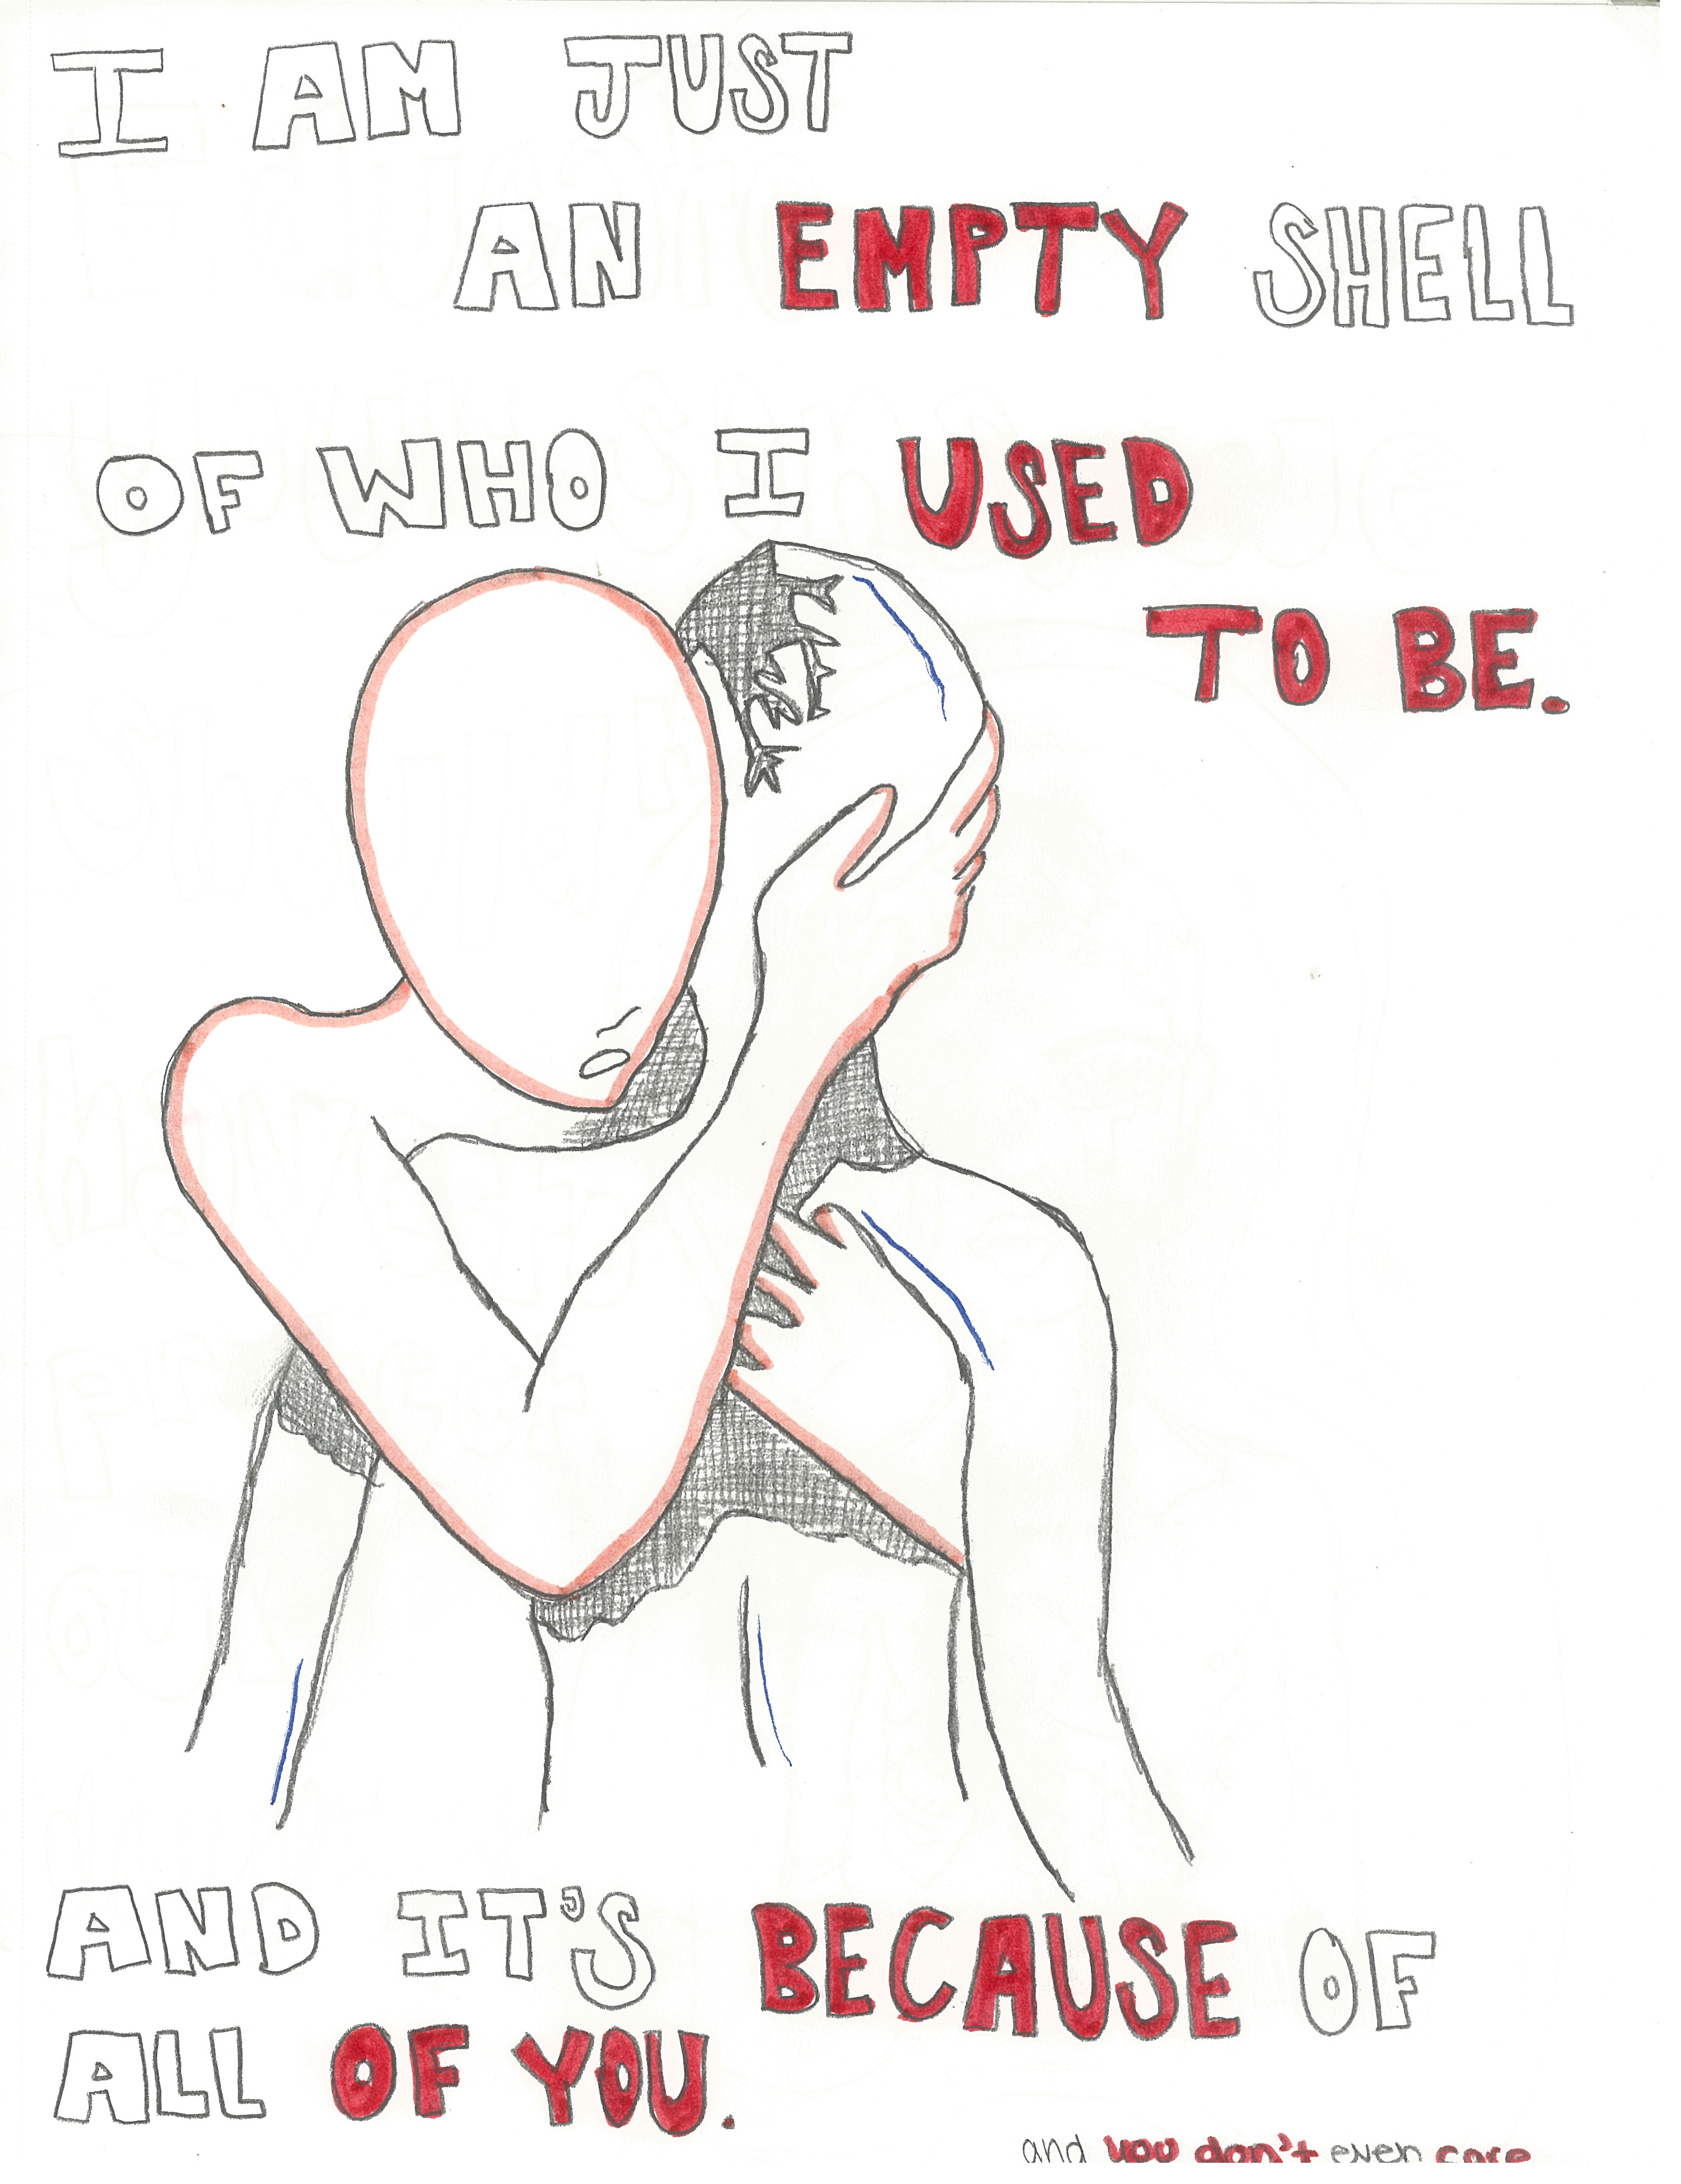 I AM JUST
AN EMPTY SHELL
OF WHO I USED
TO BE.
AND IT'S BECAUSE OF
ALL OF YOU.
and you don't even care